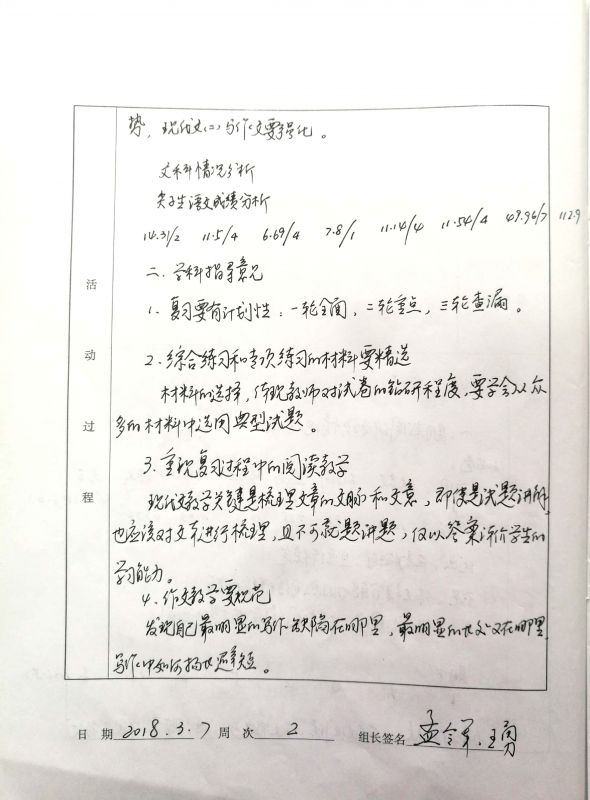 势，现代文(二)写作文要强化。
文科情况分析
尖子生语文成绩分析
14.31/2 11.5/4 6.69/4 7.8/1 11.14/4 11.54/4 49.96/7 112.9
二、学科指导意见
1、复习要有计划性：一轮全面，二轮重点，三轮查漏。
2、综合练习和专项练习的材料要精选
材料的选择，体现教师对试卷的钻研程度，要学会从众
多的材料中选用典型试题。
3、重视复习过程中的阅读教学
现代文教学关键是梳理文章的文脉和文意，即使是试题讲解，
也应该对文章进行梳理，且不可就题讲题，仅以答案评价学生的
学习能力。
4、作文教学要规范
发现自己最明显的写作缺陷在哪里，最明显的优点又在哪里，
写作中如何扬长避短。
活
动
过
程
日 期 2018.3.7 周 次 2 组长签名 孟令军、王勇